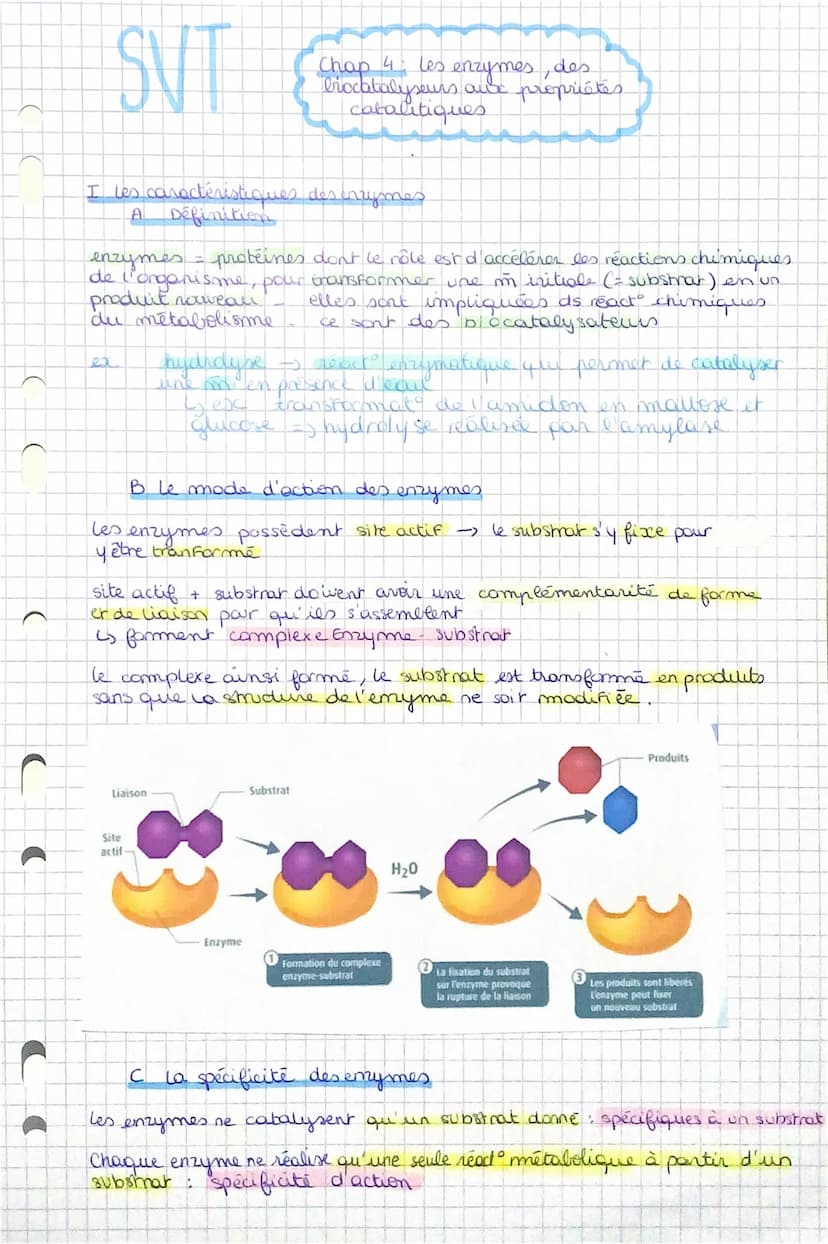 SVT
Chap 4 : Les enzymes, des
biocatalyseurs aux propriétés
catalitiques
I Les caractéristiques des enzymes
A Définition
enzymes = protéines dont le rôle est d'accélérer les réactions chimiques
de l'organisme, pour transformer une m̄ initiale (= substrat) en un
produit nouveau - elles sont impliquées ds réact° chimiques
du métabolisme. ce sont des biocatalysateurs
ex hydrolyse → réact° enzymatique qui permet de catalyser
une m̄ en présence d'eau
↳ ex transformat° de l'amidon en maltose et
glucose => hydrolyse réalisée par l'amylase
B Le mode d'action des enzymes
Les enzymes possèdent site actif → le substrat s'y fixe pour
y être tranformé
site actif + substrat doivent avoir une complémentarité de forme
et de liaison par qu'ils s'assemblent
↳ forment complexe Enzyme - substrat
le complexe ainsi formé, le substrat est transformé en produits
sans que la structure de l'enzyme ne soit modifiée.
Liaison
Substrat
Site
actif
Enzyme
H₂O
Produits
1 Formation du complexe
enzyme-substrat
2 La fixation du substrat
sur l'enzyme provoque
la rupture de la liaison
3 Les produits sont libérés
L'enzyme peut fixer
un nouveau substrat
C La spécificité des enzymes
Les enzymes ne catalysent qu'un substrat donné : spécifiques à un substrat
Chaque enzyme ne réalise qu'une seule réact° métabolique à partir d'un
substrat : spécificité d'action